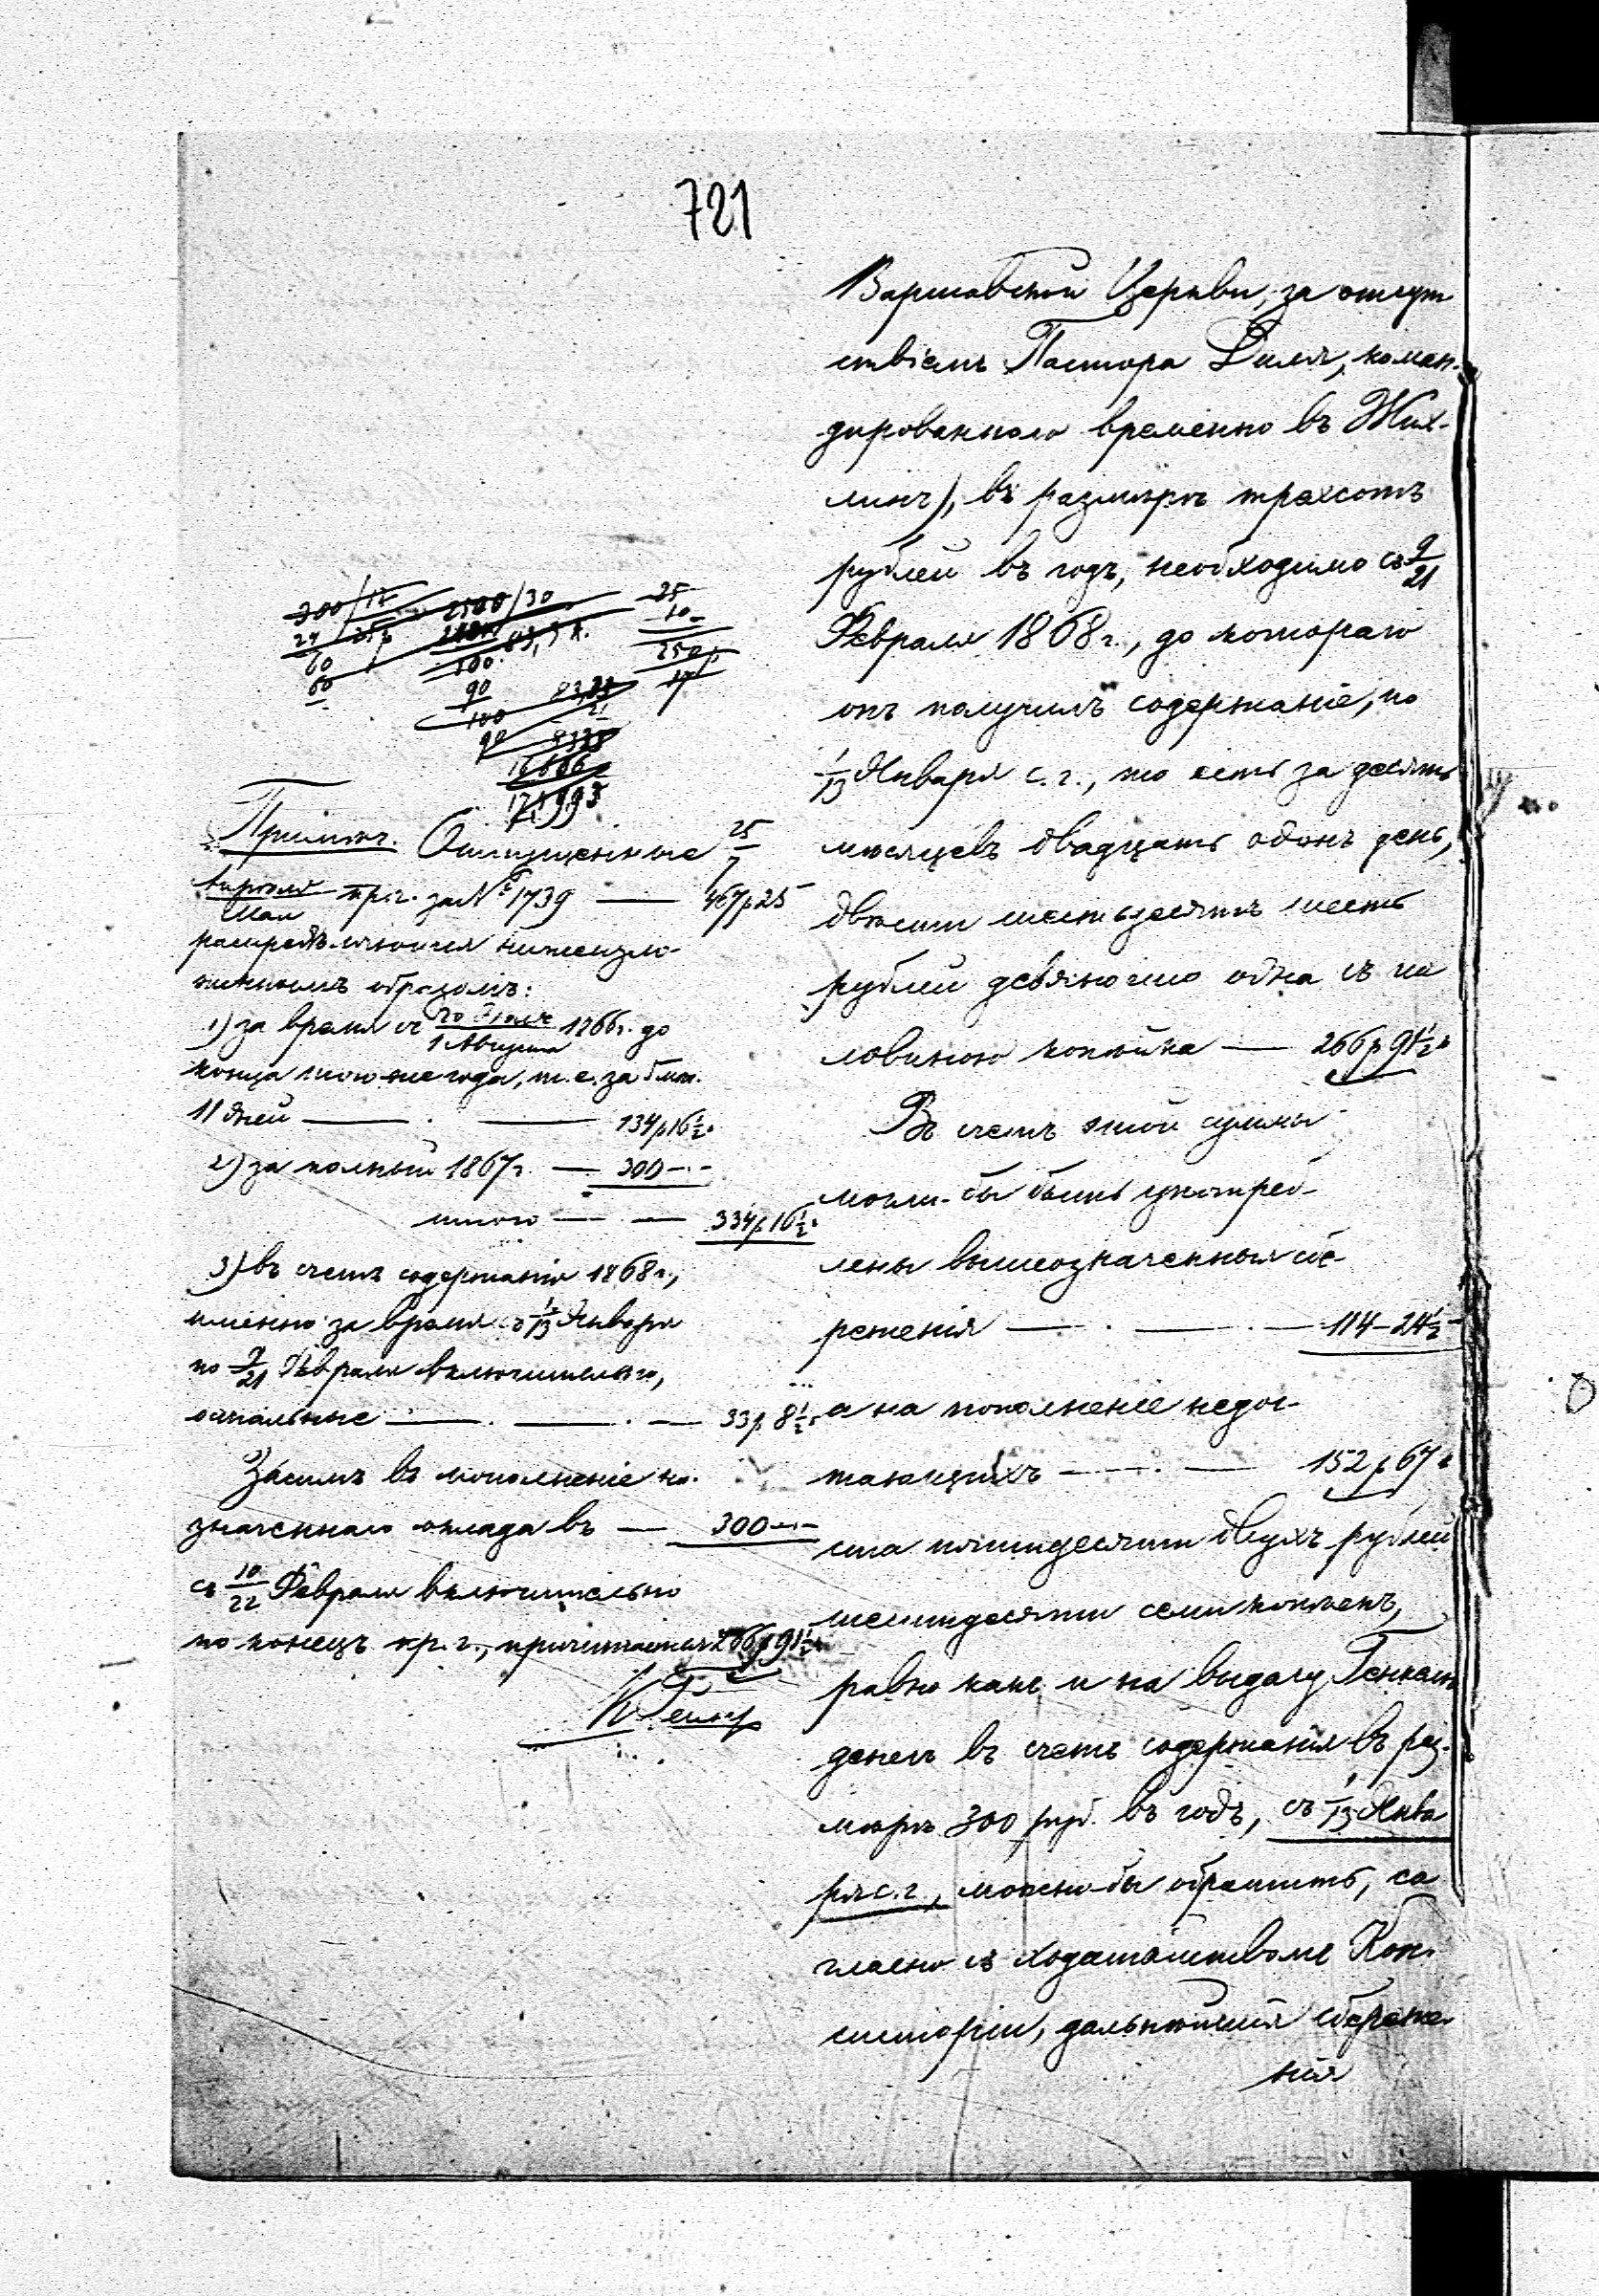 721
Варшавской Церкви, за отсут
ствіемъ Пастора Диля, коман-
дированнаго временно въ Жих-
линъ), въ размѣрѣ трехсотъ
рублей въ годъ, необходимо съ 9/21
Февраля 1868 г., до котораго
онъ получилъ содержаніе, по
1/13 Января с. г., то есть за десять
мѣсяцевъ двадцать одинъ день,
двѣсти шестьдесятъ шесть
рублей девяносто одна съ по
ловиною копѣйка — 266 р 91½ к
Въ счетъ этой суммы
могли-бы быть употреб-
лены вышеозначенныя сбе-
реженія — · — · — 114 – 24½
а на пополненіе недос-
тающихъ — · — 152 р 67 к
ста пятидесяти двухъ рублей
шестидесяти семи копѣекъ,
равно какъ и на выдачу Генкелю
денегъ въ счетъ содержанія въ раз-
мѣрѣ 300 руб. въ годъ, съ 1/13 Янва
ря с. г., можно-бы обратить, со
гласно съ ходатайствомъ Кон-
систоріи, дальнѣйшія сбереже-
нія
300/12 2500/30 25
24 25 10
60 100 250
60 90 83,33
100 21
90 8333
16666
174993
Примѣч. Отпущенные 25/7
Апрѣля/Мая пр. г. за № 1739 — 467 р 25
распредѣляются нижеизло-
женнымъ образомъ:
1) за время съ 20 Іюля/1 Августа 1866 г. до
конца того-же года, т. е. за 5 мѣс.
11 дней — · — 134 р 16½ к
2) за полный 1867 г. — 300 –·–
итого — · — 334 р 16½ к
3) въ счетъ содержанія 1868 г.,
именно за время съ 1/13 Января
по 9/21 Февраля включительно,
остальные — · — · — 33 р 8½ к
Засимъ въ пополненіе на-
значеннаго оклада въ — 300 –·–
съ 10/22 Февраля включительно
по конецъ пр. г., причитается 266 р 91½ к